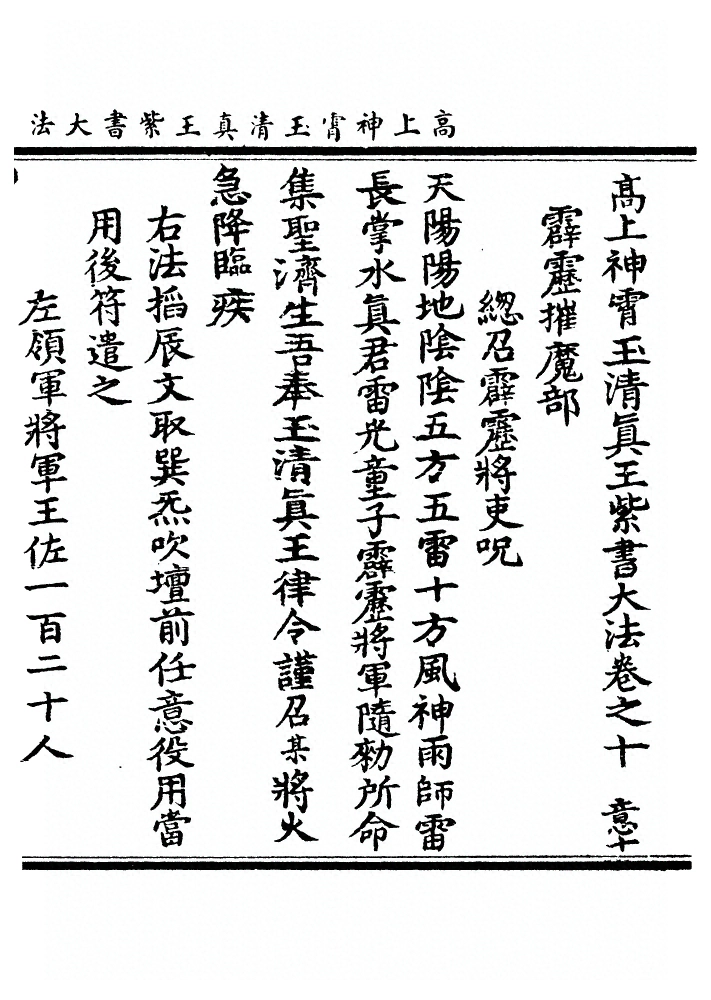 高上神霄玉清真王紫書大法
髙上神霄玉清眞王紫書大法卷之十 意十
霹靂摧魔部
緫召霹靂將吏呪
天陽陽地陰陰五方五雷十方風神雨師雷
長掌水眞君雷光童子霹靂將軍隨勑所命
集聖濟生吾奉玉清眞王律令謹召某將火
急降臨疾
右法搯辰文取巽炁吹壇前任意役用當
用後符遣之
左領軍將軍王佐一百二十人